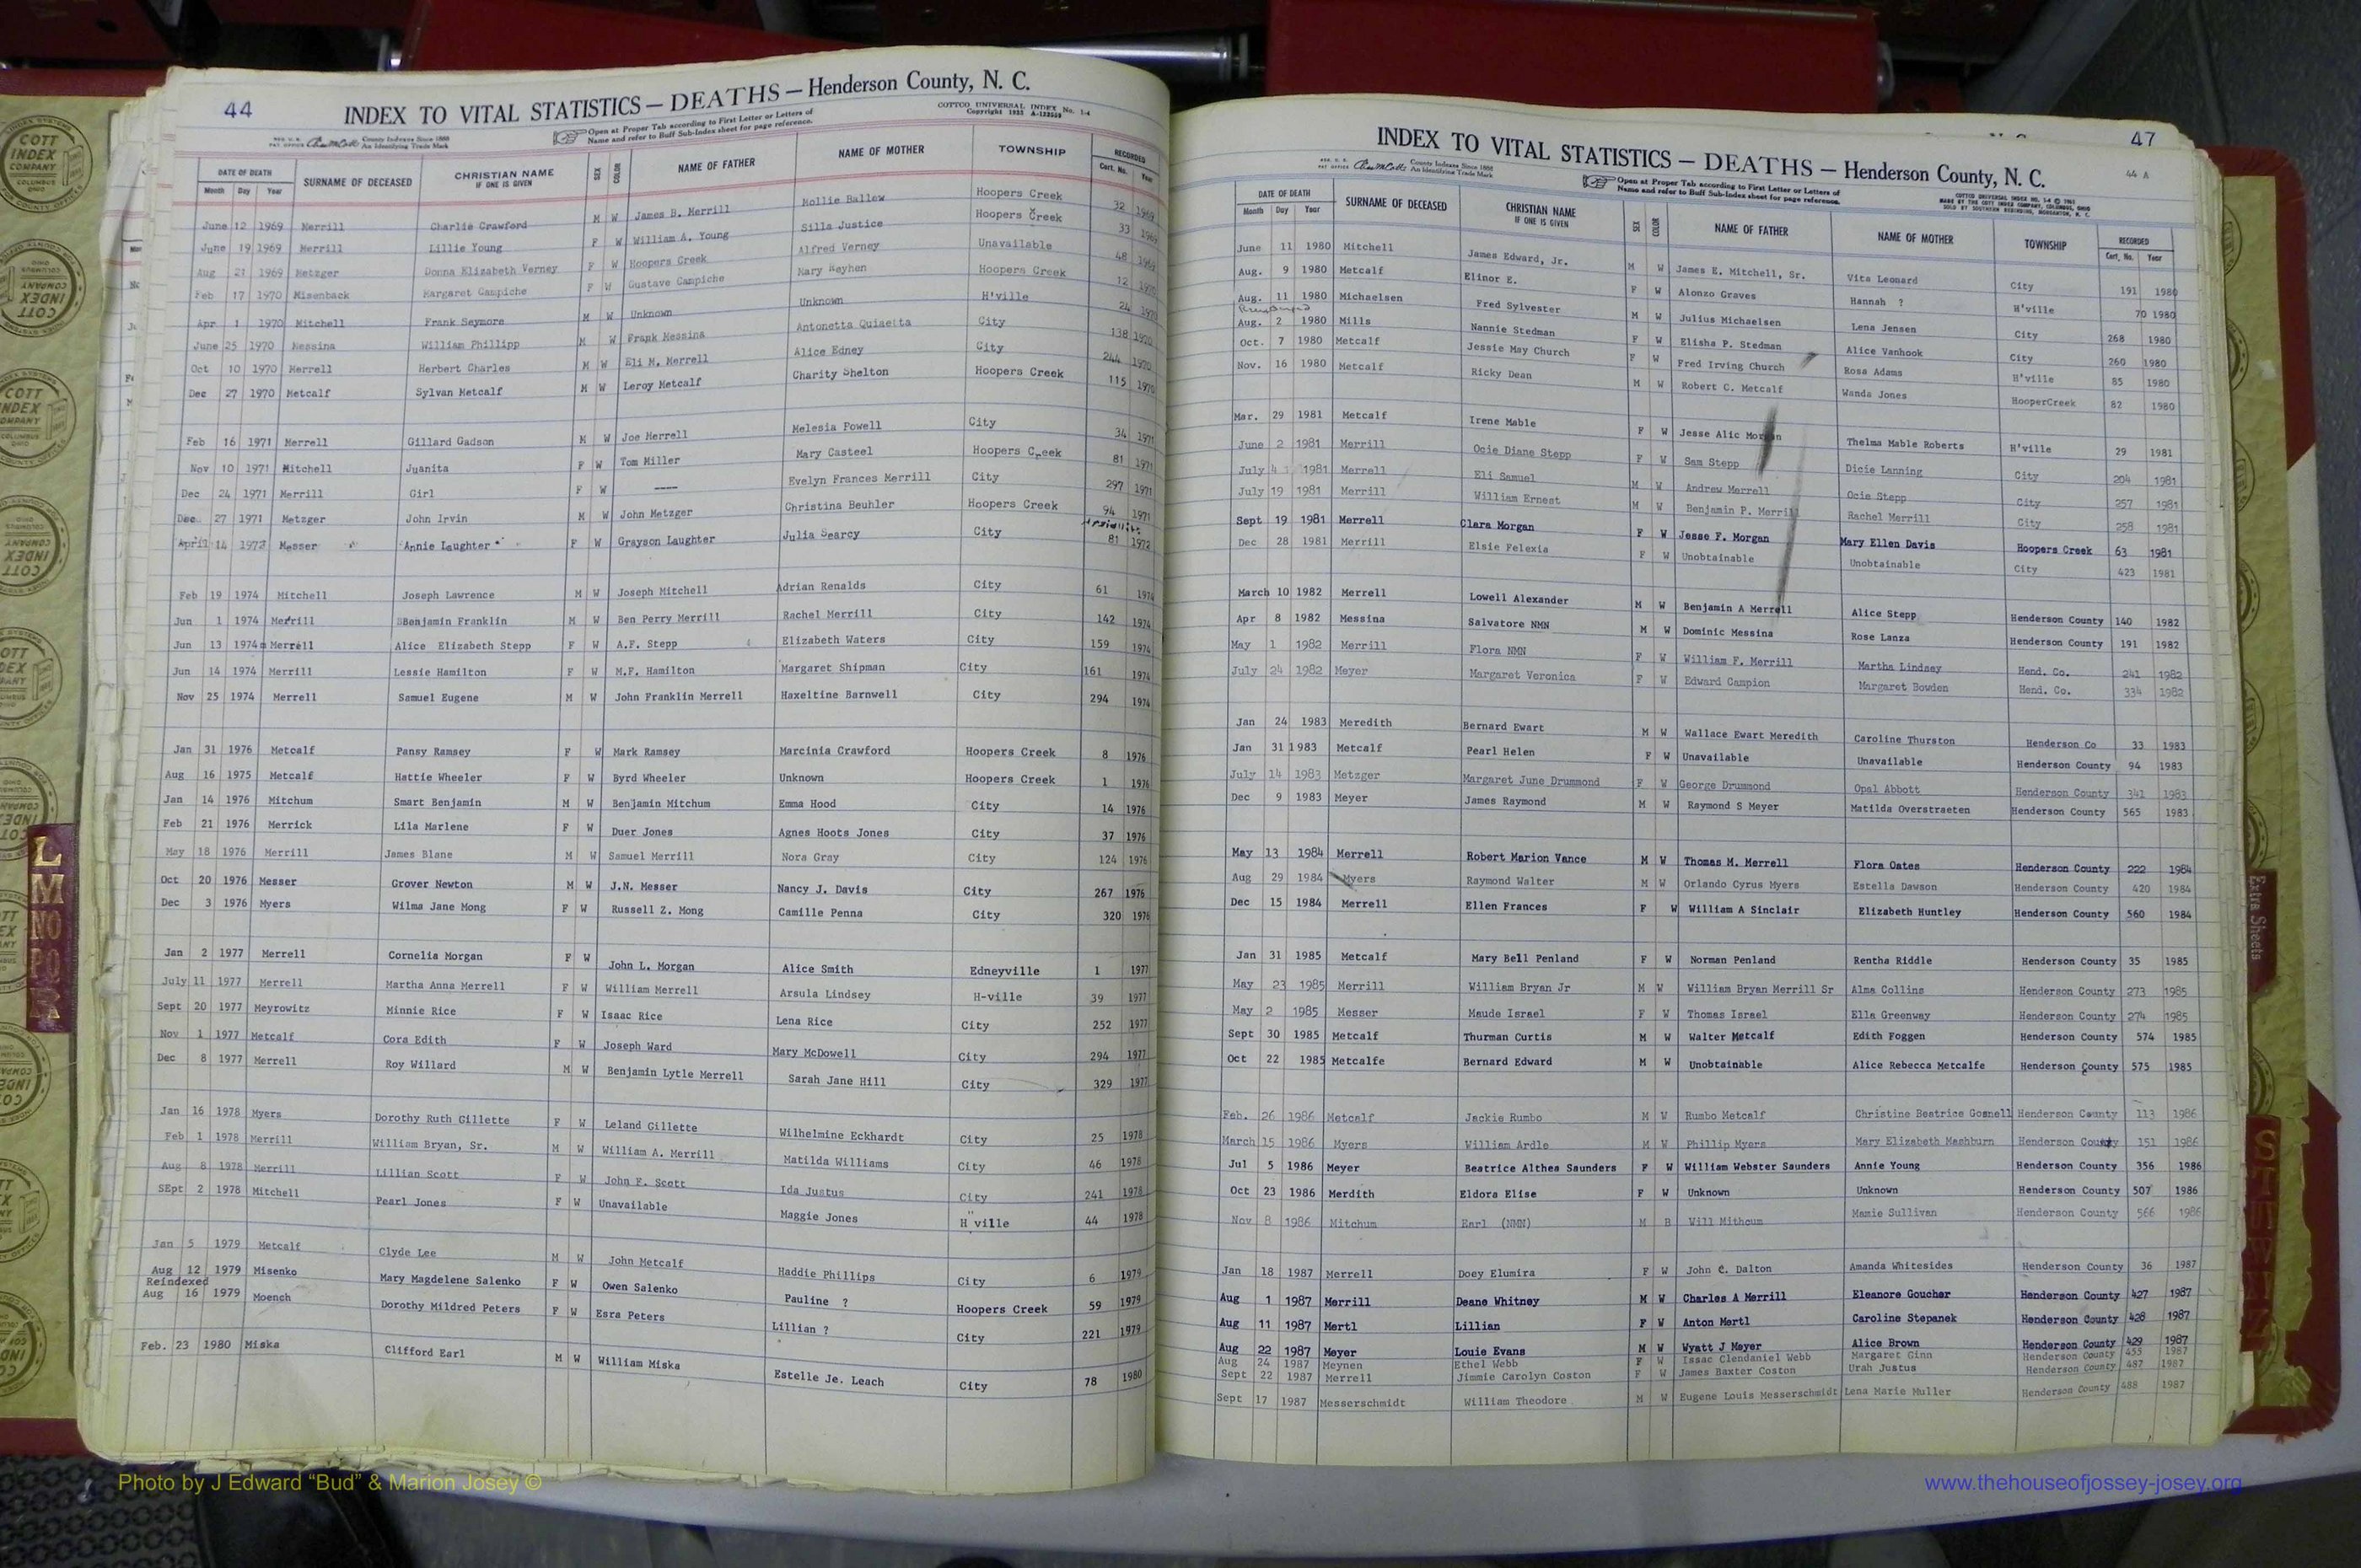 44
INDEX TO VITAL STATISTICS — DEATHS — Henderson County, N. C.
COTTCO UNIVERSAL INDEX No. 1-4
Open at Proper Tab according to First Letter or Letters of
Name and refer to Buff Sub-Index sheet for page reference.
County Indexes Since 1888
An Identifying Trade Mark
DATE OF DEATH SURNAME OF DECEASED CHRISTIAN NAME IF ONE IS GIVEN SEX COLOR NAME OF FATHER NAME OF MOTHER TOWNSHIP RECORDED
Month Day Year Cert. No. Year
June 12 1969 Merrill Charlie Crawford M W James B. Merrill Mollie Ballew Hoopers Creek 32 1969
June 19 1969 Merrill Lillie Young F W William A. Young Silla Justice Hoopers Creek 33 1969
Aug 21 1969 Metzger Donna Elizabeth Verney F W Hoopers Creek Alfred Verney Unavailable 48 1969
Feb 17 1970 Misenback Margaret Campiche F W Gustave Campiche Mary Reyhen Hoopers Creek 12 1970
Apr 1 1970 Mitchell Frank Seymore M W Unknown Unknown H'ville 24 1970
June 25 1970 Messina William Phillipp M W Frank Messina Antonetta Quiaetta City 138 1970
Oct 10 1970 Merrell Herbert Charles M W Eli M. Merrell Alice Edney City 244 1970
Dec 27 1970 Metcalf Sylvan Metcalf M W Leroy Metcalf Charity Shelton Hoopers Creek 115 1970
Feb 16 1971 Merrell Gillard Gadson M W Joe Merrell Melesia Powell City 34 1971
Nov 10 1971 Mitchell Juanita F W Tom Miller Mary Casteel Hoopers Creek 81 1971
Dec 24 1971 Merrill Girl F W ---- Evelyn Frances Merrill City 297 1971
Dec. 27 1971 Metzger John Irvin M W John Metzger Christina Beuhler Hoopers Creek 94 1971
April 14 1972 Messer Annie Laughter F W Grayson Laughter Julia Searcy City 81 1972
Feb 19 1974 Mitchell Joseph Lawrence M W Joseph Mitchell Adrian Renalds City 61 1974
Jun 1 1974 Merrill Benjamin Franklin M W Ben Perry Merrill Rachel Merrill City 142 1974
Jun 13 1974 Merrell Alice Elizabeth Stepp F W A.F. Stepp Elizabeth Waters City 159 1974
Jun 14 1974 Merrill Lessie Hamilton F W M.F. Hamilton Margaret Shipman City 161 1974
Nov 25 1974 Merrell Samuel Eugene M W John Franklin Merrell Haxeltine Barnwell City 294 1974
Jan 31 1976 Metcalf Pansy Ramsey F W Mark Ramsey Marcinia Crawford Hoopers Creek 8 1976
Aug 16 1975 Metcalf Hattie Wheeler F W Byrd Wheeler Unknown Hoopers Creek 1 1976
Jan 14 1976 Mitchum Smart Benjamin M W Benjamin Mitchum Emma Hood City 14 1976
Feb 21 1976 Merrick Lila Marlene F W Duer Jones Agnes Hoots Jones City 37 1976
May 18 1976 Merrill James Blane M W Samuel Merrill Nora Gray City 124 1976
Oct 20 1976 Messer Grover Newton M W J.N. Messer Nancy J. Davis City 267 1976
Dec 3 1976 Myers Wilma Jane Mong F W Russell Z. Mong Camille Penna City 320 1976
Jan 2 1977 Merrell Cornelia Morgan F W John L. Morgan Alice Smith Edneyville 1 1977
July 11 1977 Merrell Martha Anna Merrell F W William Merrell Arsula Lindsey H-ville 39 1977
Sept 20 1977 Meyrowitz Minnie Rice F W Isaac Rice Lena Rice City 252 1977
Nov 1 1977 Metcalf Cora Edith F W Joseph Ward Mary McDowell City 294 1977
Dec 8 1977 Merrell Roy Willard M W Benjamin Lytle Merrell Sarah Jane Hill City 329 1977
Jan 16 1978 Myers Dorothy Ruth Gillette F W Leland Gillette Wilhelmine Eckhardt City 25 1978
Feb 1 1978 Merrill William Bryan, Sr. M W William A. Merrill Matilda Williams City 46 1978
Aug 8 1978 Merrill Lillian Scott F W John F. Scott Ida Justus City 241 1978
SEpt 2 1978 Mitchell Pearl Jones F W Unavailable Maggie Jones H"ville 44 1978
Jan 5 1979 Metcalf Clyde Lee M W John Metcalf Haddie Phillips City 6 1979
Aug 12 1979 Misenko Mary Magdelene Salenko F W Owen Salenko Pauline ? Hoopers Creek 59 1979
Reindexed
Aug 16 1979 Moench Dorothy Mildred Peters F W Esra Peters Lillian ? City 221 1979
Feb. 23 1980 Miska Clifford Earl M W William Miska Estelle Je. Leach City 78 1980
47
INDEX TO VITAL STATISTICS — DEATHS — Henderson County, N. C.
44 A
County Indexes Since 1888
An Identifying Trade Mark
Open at Proper Tab according to First Letter or Letters of
Name and refer to Buff Sub-Index sheet for page reference.
DATE OF DEATH SURNAME OF DECEASED CHRISTIAN NAME IF ONE IS GIVEN SEX COLOR NAME OF FATHER NAME OF MOTHER TOWNSHIP RECORDED
Month Day Year Cert. No. Year
June 11 1980 Mitchell James Edward, Jr. M W James E. Mitchell, Sr. Vita Leonard City 191 1980
Aug. 9 1980 Metcalf Elinor E. F W Alonzo Graves Hannah ? H'ville 70 1980
Aug. 11 1980 Michaelsen Fred Sylvester M W Julius Michaelsen Lena Jensen City 268 1980
Aug. 2 1980 Mills Nannie Stedman F W Elisha P. Stedman Alice Vanhook City 260 1980
Oct. 7 1980 Metcalf Jessie May Church F W Fred Irving Church Rosa Adams H'ville 85 1980
Nov. 16 1980 Metcalf Ricky Dean M W Robert C. Metcalf Wanda Jones HooperCreek 82 1980
Mar. 29 1981 Metcalf Irene Mable F W Jesse Alic Morgan Thelma Mable Roberts H'ville 29 1981
June 2 1981 Merrill Ocie Diane Stepp F W Sam Stepp Dicie Lanning City 204 1981
July 4 1981 Merrell Eli Samuel M W Andrew Merrell Ocie Stepp City 257 1981
July 19 1981 Merrill William Ernest M W Benjamin P. Merrill Rachel Merrill City 258 1981
Sept 19 1981 Merrell Clara Morgan F W Jesse F. Morgan Mary Ellen Davis Hoopers Creek 63 1981
Dec 28 1981 Merrill Elsie Felexia F W Unobtainable Unobtainable City 423 1981
March 10 1982 Merrell Lowell Alexander M W Benjamin A Merrell Alice Stepp Henderson County 140 1982
Apr 8 1982 Messina Salvatore NMN M W Dominic Messina Rose Lanza Henderson County 191 1982
May 1 1982 Merrill Flora NMN F W William F. Merrill Martha Lindsay Hend. Co. 241 1982
July 24 1982 Meyer Margaret Veronica F W Edward Campion Margaret Bowden Hend. Co. 334 1982
Jan 24 1983 Meredith Bernard Ewart M W Wallace Ewart Meredith Caroline Thurston Henderson Co 33 1983
Jan 31 1983 Metcalf Pearl Helen F W Unavailable Unavailable Henderson County 94 1983
July 14 1983 Metzger Margaret June Drummond F W George Drummond Opal Abbott Henderson County 341 1983
Dec 9 1983 Meyer James Raymond M W Raymond S Meyer Matilda Overstraeten Henderson County 565 1983
May 13 1984 Merrell Robert Marion Vance M W Thomas M. Merrell Flora Oates Henderson County 222 1984
Aug 29 1984 Myers Raymond Walter M W Orlando Cyrus Myers Estella Dawson Henderson County 420 1984
Dec 15 1984 Merrell Ellen Frances F W William A Sinclair Elizabeth Huntley Henderson County 560 1984
Jan 31 1985 Metcalf Mary Bell Penland F W Norman Penland Rentha Riddle Henderson County 35 1985
May 23 1985 Merrill William Bryan Jr M W William Bryan Merrill Sr Alma Collins Henderson County 273 1985
May 2 1985 Messer Maude Israel F W Thomas Israel Ella Greenway Henderson County 274 1985
Sept 30 1985 Metcalf Thurman Curtis M W Walter Metcalf Edith Foggen Henderson County 574 1985
Oct 22 1985 Metcalfe Bernard Edward M W Unobtainable Alice Rebecca Metcalfe Henderson County 575 1985
Feb. 26 1986 Metcalf Jackie Rumbo M W Rumbo Metcalf Christine Beatrice Gosnell Henderson County 113 1986
March 15 1986 Myers William Ardle M W Phillip Myers Mary Elizabeth Mashburn Henderson County 151 1986
Jul 5 1986 Meyer Beatrice Althea Saunders F W William Webster Saunders Annie Young Henderson County 356 1986
Oct 23 1986 Merdith Eldora Elise F W Unknown Unknown Henderson County 507 1986
Nov 8 1986 Mitchum Earl (NMN) M B Will Mithcum Mamie Sullivan Henderson County 566 1986
Jan 18 1987 Merrell Doey Elumira F W John C. Dalton Amanda Whitesides Henderson County 36 1987
Aug 1 1987 Merrill Deane Whitney M W Charles A Merrill Eleanore Goucher Henderson County 427 1987
Aug 11 1987 Mertl Lillian F W Anton Mertl Caroline Stepanek Henderson County 428 1987
Aug 22 1987 Meyer Louie Evans M W Wyatt J Meyer Alice Brown Henderson County 429 1987
Aug 24 1987 Meynen Ethel Webb F W Isaac Clendaniel Webb Margaret Ginn Henderson County 453 1987
Sept 22 1987 Merrell Jimmie Carolyn Coston F W James Baxter Coston Urah Justus Henderson County 487 1987
Sept 17 1987 Messerschmidt William Theodore M W Eugene Louis Messerschmidt Lena Marie Muller Henderson County 488 1987
COTT INDEX COMPANY COLUMBUS OHIO
L
M
NO
PQ
R
Extra Sheets
Photo by J Edward “Bud” & Marion Josey ©
www.thehouseofjossey-josey.org